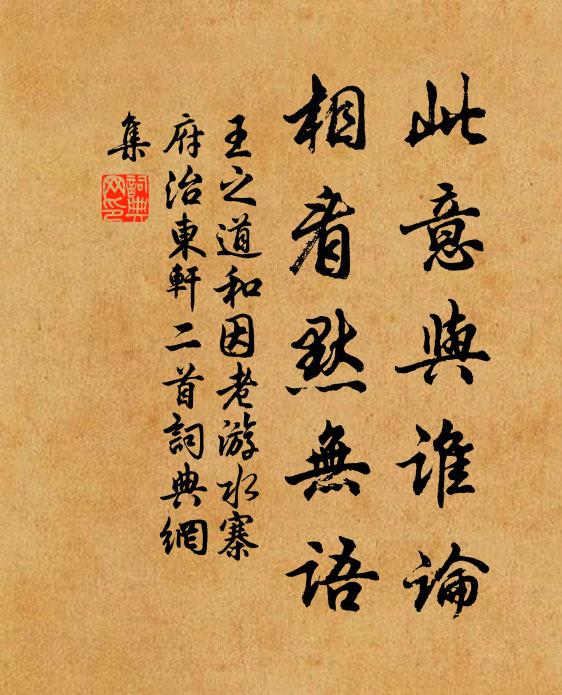 此意與誰論
相看默無語
王之道和因老游水寨
府治東軒二首詞典網
集
詞典
网印